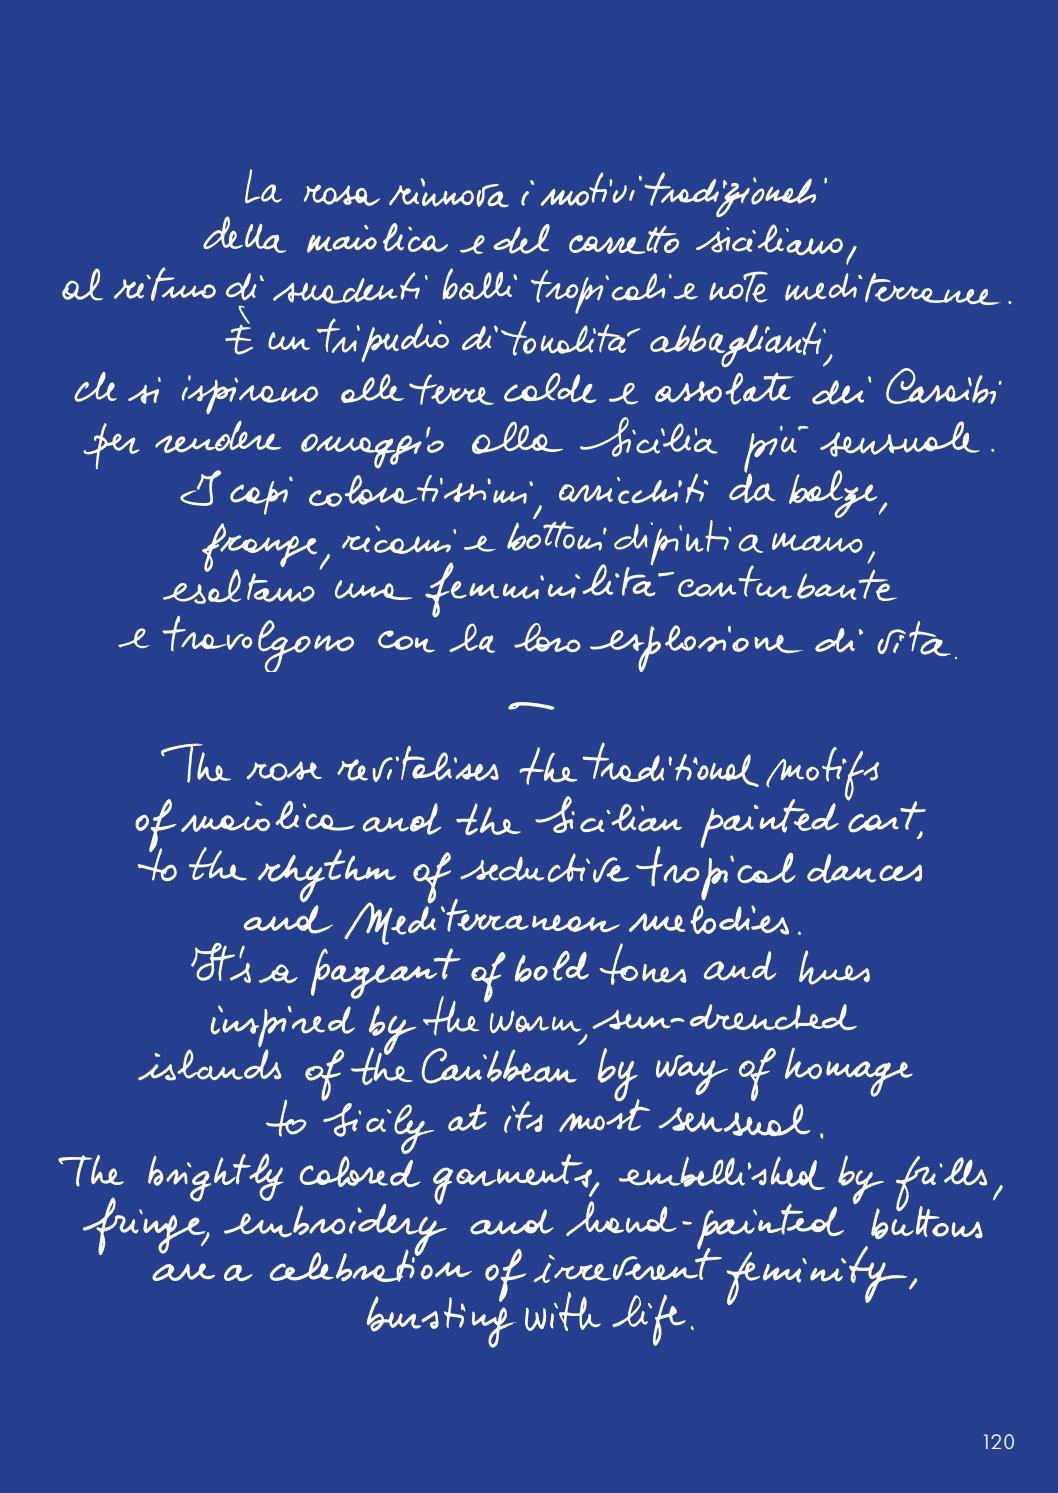 La rosa rinnova i motivi tradizionali
della maiolica e del carretto siciliano,
al ritmo di suadenti balli tropicali e note mediterranee.
È un tripudio di tonalità abbaglianti,
che si ispirano alle terre calde e assolate dei Caraibi
per rendere omaggio alla Sicilia più sensuale.
I capi coloratissimi, arricchiti da balze,
frange, ricami e bottoni dipinti a mano,
esaltano una femminilità conturbante
e travolgono con la loro esplosione di vita.
—
The rose revitalises the traditional motifs
of maiolica and the Sicilian painted cart,
to the rhythm of seductive tropical dances
and Mediterranean melodies.
It's a pageant of bold tones and hues
inspired by the warm, sun-drenched
islands of the Caribbean by way of homage
to Sicily at its most sensual.
The brightly colored garments, embellished by frills,
fringe, embroidery and hand-painted buttons
are a celebration of irreverent feminity,
bursting with life.
120